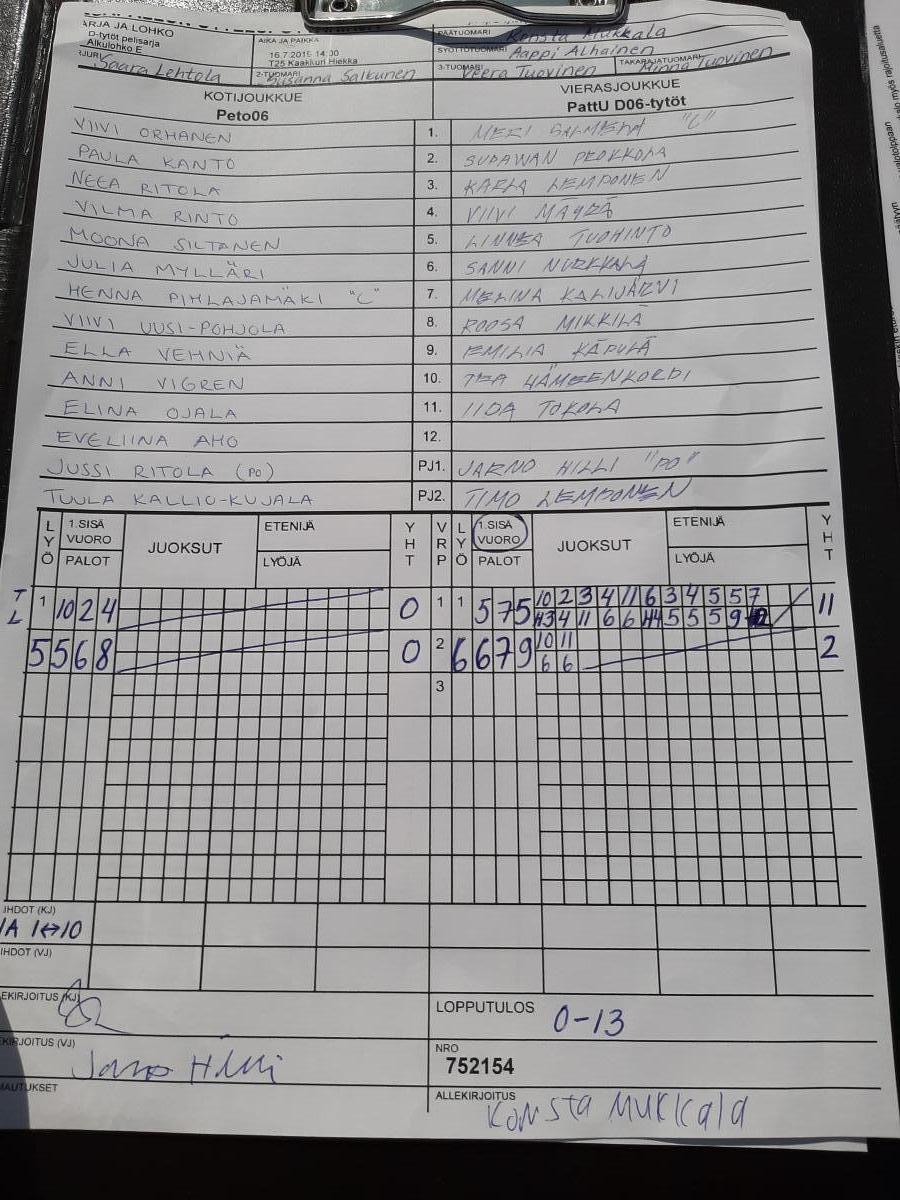 ARJA JA LOHKO
D-tytöt pelisarja
Alkulohko E
AIKA JA PAIKKA
16.7.2019 14:30
T25 Kaakkuri Hiekka
PÄÄTUOMARI Konsta Mukkala
SYÖTTÖTUOMARI Aappi Alhainen
JURI Saara Lehtola
2-TUOMARI Susanna Saikunen
3-TUOMARI Veera Tuovinen
TAKARAJATUOMARI Minna Tuovinen
KOTIJOUKKUE
Peto06
VIERASJOUKKUE
PattU D06-tytöt
VIIVI ORHANEN 1. MERI SALMELA "C"
PAULA KANTO 2.
NEEA RITOLA 3. KARLA LEMPONEN
VILMA RINTO 4. VIIVI
MOONA SILTANEN 5. LINNEA TUOHINTO
JULIA MYLLÄRI 6. SANNI NURKKALA
HENNA PIHLAJAMÄKI "C" 7. MELINA KALIJÄRVI
VIIVI UUSI-POHJOLA 8. ROOSA MIKKILÄ
ELLA VEHNIÄ 9. EMILIA KÄPYLÄ
ANNI VIGREN 10. TEA HÄMEENKORPI
ELINA OJALA 11. IIDA TOKOLA
EVELIINA AHO 12.
JUSSI RITOLA (PO) PJ1. JARNO HILLI "PO"
TUULA KALLIO-KUJALA PJ2. TIMO LEMPONEN
LYÖ 1.SISÄ VUORO PALOT JUOKSUT ETENIJÄ LYÖJÄ YHT VRP LYÖ 1.SISÄ VUORO PALOT JUOKSUT ETENIJÄ LYÖJÄ YHT
T 10 2 3 4 11 6 3 4 5 5 7
L 1 10 2 4 0 1 1 5 7 5 11
3 4 11 6 6 5 5 5 9
5 5 6 8 0 2 6 6 7 9 10 11 2
6 6
3
IHDOT (KJ)
1↔10
IHDOT (VJ)
EKIRJOITUS (KJ)
LOPPUTULOS 0-13
EKIRJOITUS (VJ) Jarno Hilli
NRO
752154
MAUTUKSET
ALLEKIRJOITUS Konsta Mukkala